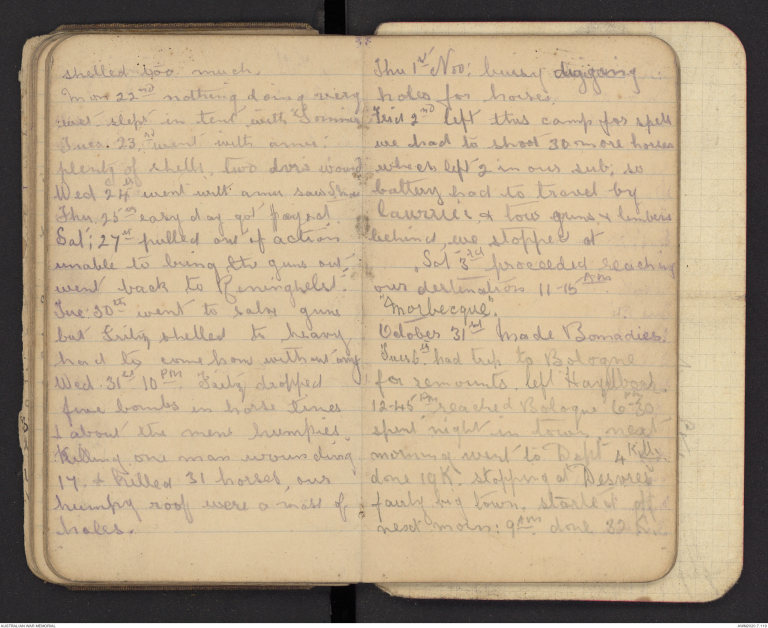 shelled too much.
Mon 22nd nothing doing very
wet slept in tent with
Tues. 23rd went with amm:
plenty of shells, two dvrs wound
Wed 24th went with amm saw
Thu. 25th easy day got payed.
Sat; 27th pulled out of action
unable to bring the guns out
went back to Reninghelst.
Tue. 30th went to salv guns
but Fritz shelled to heavy
had to come hom without any
Wed. 31st 10 PM. Fritz dropped
five bombs in horse lines
& about the mens humpies.
Killing one man wounding
17. & killed 31 horses, our
humpy roof were a mass of
holes.
Thu 1st Nov: bussy digging
holes for horses.
Frid 2nd left this camp for spell
we had to shoot 30 more horses
which left 2 in our sub; so
battery had to travel by
laurries & tow guns & limbers
behind, we stopped at
Sat 3rd proceeded reaching
our destination 11-15 AM.
"Morbecque".
October 31st Made Bomadier.
Tues 6th had trip to Bologne
for remounts. left Hazelbork.
12-45 PM reached Bologne 6-30 PM
spent night in town, next
morning went to Dept 4
done 19K. stopping at Desvres
fairly big town. started off
next morn: 9 AM done 32 K.